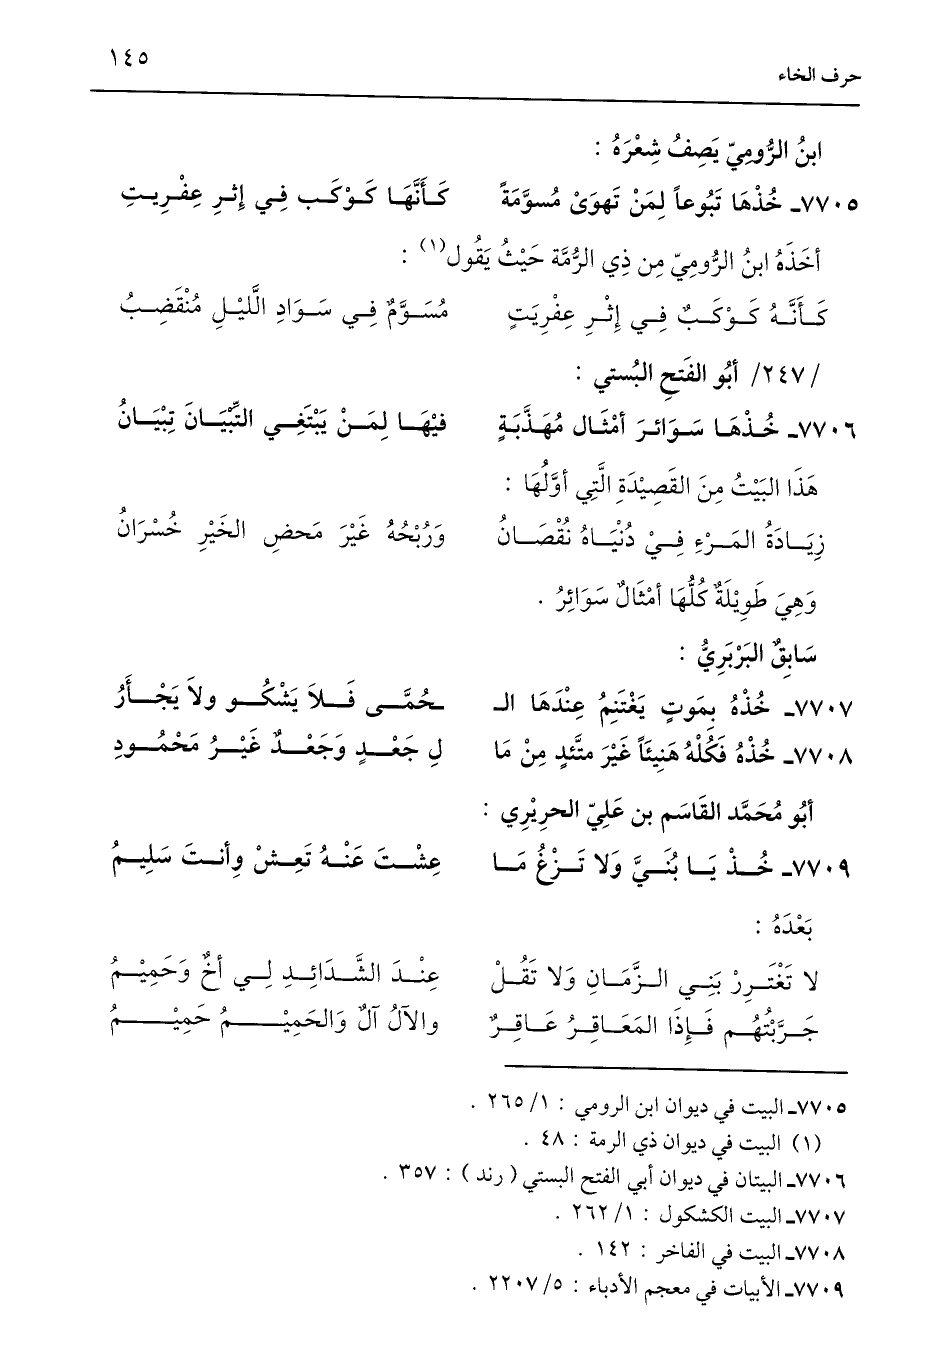 ١٤٥
حرف الخاء
ابنُ الرُّومِيّ يَصِفُ شِعْرَهُ :
٧٧٠٥ـ خُذْهَا تَبُوعاً لِمَنْ تَهوَىْ مُسوَّمَةً كَأَنَّهَا كَوْكَب فِي إِثرِ عِفْرِيتِ
أخَذَهُ ابنُ الرُّومِيّ مِن ذِي الرُّمَّة حَيْثُ يَقُول(١) :
كَأنَّهُ كَوْكَبٌ فِي إِثْرِ عِفْرِيَتٍ مُسَوَّمٌ فِي سَوَادِ الَّليْلِ مُنْقَضِبُ
/٢٤٧/ أبُو الفَتَحِ البُستي :
٧٧٠٦ـ خُذْهَا سَوَائرَ أمْثَال مُهَذَّبَةٍ فيْهَا لِمَنْ يَبْتَغِي التِّبْيَانَ تِبْيَانُ
هَذَا البَيْتُ مِنَ القَصِيْدَةِ الَّتِي أوَّلُهَا :
زِيَادَةُ المَرْءِ فِيْ دُنْيَاهُ نُقْصَانُ وَرُبْحُهُ غَيْرَ مَحضِ الخَيْرِ خُسْرَانُ
وَهِيَ طَوِيْلَةٌ كُلُّهَا أمْثَالٌ سَوَائِرُ .
سَابِقٌ البَرْبَرِيُّ :
٧٧٠٧ـ خُذْهُ بِمَوتٍ يَغْتَنِمُ عِنْدَهَا الـ ـحُمَّى فَلاَ يَشْكُو ولاَ يَجْأَرُ
٧٧٠٨ـ خُذْهُ فَكُلْهُ هَنِيئَاً غَيْرَ متَّئدٍ مِنْ مَا لِ جَعْدٍ وَجَعْدٌ غَيْرُ مَحْمُودِ
أبُو مُحَمَّد القَاسَم بن عَلِيّ الحرِيْرِي :
٧٧٠٩ـ خُذْ يَا بُنَيَّ وَلا تَزْغُ مَا عِشْتَ عَنْهُ تَعِشْ وأنتَ سَلِيمُ
بَعْدَهُ :
لا تَغْتَرِرْ بَنِي الزَّمَانِ وَلا تَقُلْ عِنْدَ الشَّدَائِدِ لِي أخٌ وَحَمِيْمُ
جَرَّبْتُهُم فَإِذَا المَعَاقِرُ عَاقِرٌ والآلُ آلٌ وَالحَمِيْمُ حَمِيْمُ
٧٧٠٥ـ البيت في ديوان ابن الرومي : ١/ ٢٦٥ .
(١) البيت في ديوان ذي الرمة : ٤٨ .
٧٧٠٦ـ البيتان في ديوان أبي الفتح البستي ( رند ) : ٣٥٧ .
٧٧٠٧ـ البيت الكشكول : ١/ ٢٦٢ .
٧٧٠٨ـ البيت في الفاخر : ١٤٢ .
٧٧٠٩ـ الأبيات في معجم الأدباء : ٥/ ٢٢٠٧ .